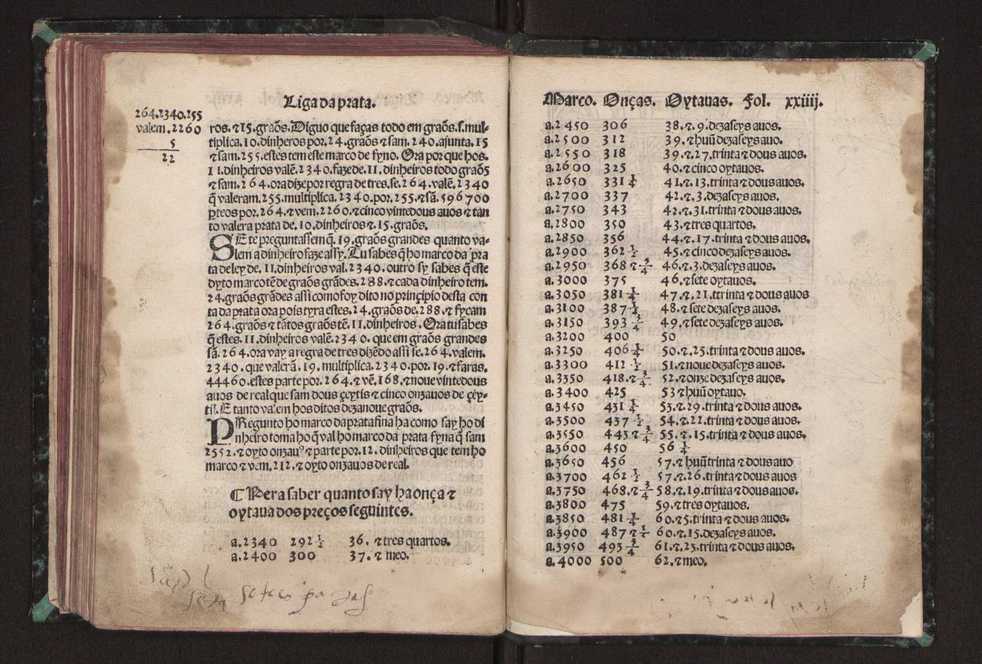 Liga da prata.
264.2340.255
valem.2260
5
22
ros.⁊ 15.graõs.Diguo que faças todo em graõs.s.mul-
tiplica.10.dinheros por.24.graõs ⁊ sam.240.ajunta.15
⁊ sam.255.estes tem este marco de fyno. Ora por que hos.
11.dinheiros valẽ.2340.faze de.11.dinheiros todo graõs
⁊ sam.264.ora dize por regra de tres.se.264.valẽ.2340
q̃ valeram.255.multiplica.2340.por.255.⁊ sã.596700
p̃teos por.264.⁊ vem.2260.⁊ cinco vintedous auos ⁊ tan
to valera prata de.10.dinheiros ⁊ 15.graõs.
SE te preguntassem q̃.19.graõs grandes quanto va-
lem a dinheiro faze assy.Tu sabes q̃ ho marco da pra
ta de ley de.11.dinheiros val.2340.outro sy sabes q̃ este
dyto marco tẽ de graõs grãdes.288.⁊ cada dinheiro tem.
24.graõs grãdes assi como foy dito no principio desta con
ta da prata ora pois tyra estes.24.graõs de.288.⁊ fycam
264.graõs ⁊ tãtos graõs tẽ.11.dinheiros.Ora tu sabes
q̃ estes.11.dinheiros valẽ.2340.que em graõs grandes
sã.264.ora vay a regra de tres dizẽdo assi se.264.valem.
2340.que valerã.19.multiplica.2340.por.19.⁊ faras.
44460.estes parte por.264.⁊ vẽ.168.⁊ noue vintedous
auos de real que sam dous çeytis ⁊ cinco onzauos de çey-
til.E tanto valem hos ditos dezanoue graõs.
PRegunto ho marco da prata fina ha como say ho di
nheiro toma ho q̃ val ho marco da prata fyna q̃ sam
2552.⁊ oyto onzauos ⁊ parte por.12.dinheiros que tem ho
marco ⁊ vem.212.⁊ oyto onzauos de real.
❡ Pera saber quanto say ha onça ⁊
oytaua dos preços seguintes.
a.2340 292 1/2 36.⁊ tres quartos.
a.2400 300 37.⁊ meo.
Marco. Onças. Oytauas. Fol. xxiiij.
a.2450 306 38.⁊ 9.dezaseys auos.
a.2500 312 39.⁊ huũ dezaseys auo.
a.2550 318 39.⁊ 27.trinta ⁊ dous auos.
a.2600 325 40.⁊ cinco oytauos.
a.2650 331 1/4 41.⁊ 13.trinta ⁊ dous auos.
a.2700 337 42.⁊ 3.dezaseys auos.
a.2750 343 42.⁊ 31.trinta ⁊ dous auos.
a.2800 350 43.⁊ tres quartos.
a.2850 356 44.⁊ 17.trinta ⁊ dous auos.
a.2900 362 1/2 45.⁊ cinco dezaseys auos.
a.2950 368 ⁊ 3/4 46.⁊ 3.dezaseys auos.
a.3000 375 46.⁊ sete oytauos.
a.3050 381 1/4 47.⁊ 21.trinta ⁊ dous auos
a.3100 387 1/2 48.⁊ sete dezaseys auos.
a.3150 393 3/4 49.⁊ sete dezaseys auos.
a.3200 400 50
a.3250 406 1/4 50.⁊ 25.trinta ⁊ dous auos.
a.3300 412 1/2 51.⁊ noue dezaseys auos.
a.3350 418.⁊ 3/4 52.⁊ onze dezaseys auos.
a.3400 425 53 ⁊ huũ oytauo.
a.3450 431 1/4 53.⁊ 29.trinta ⁊ dous auos.
a.3500 437 1/2 54.⁊ 22.trinta ⁊ dous auos.
a.3550 443 ⁊ 3/4 55.⁊ 15.trinta ⁊ dous auos.
a.3600 450 56 1/4
a.3650 456 57.⁊ huũ trinta ⁊ dous auo
a.3700 462 1/2 57.⁊ 26.trinta ⁊ dous auo
a.3750 468.⁊ 3/4 58.⁊ 19.trinta ⁊ dous auos.
a.3800 475 59.⁊ tres oytauos.
a.3850 481 1/4 60.⁊ 5.trinta ⁊ dous auos.
a.3900 487 ⁊ 1/2 60.⁊ 15.dezaseys auos.
a.3950 493 3/4 61.⁊ 23.trinta ⁊ dous auos.
a.4000 500 62.⁊ meo.